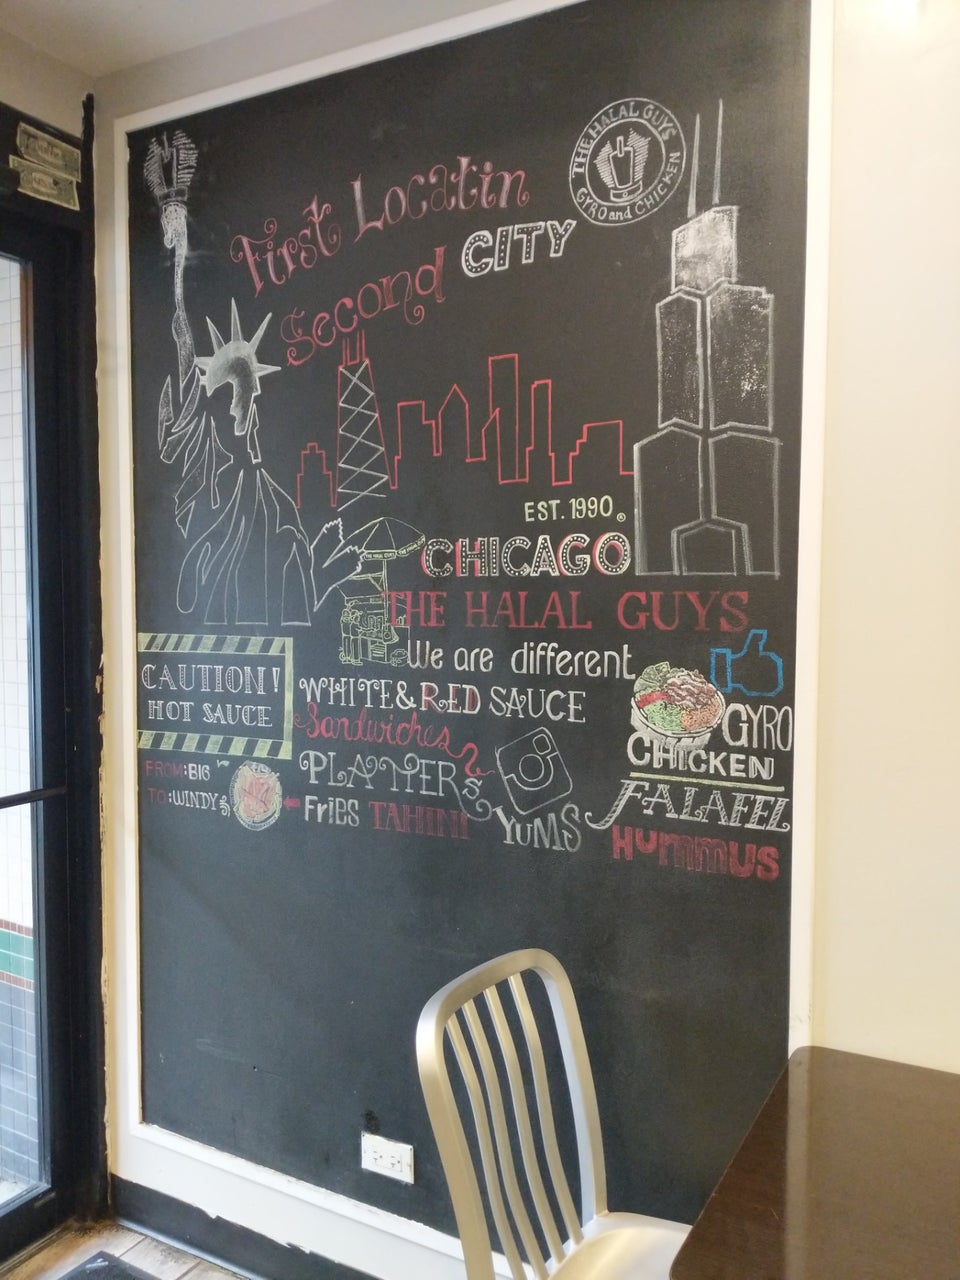 THE HALAL GUYS
GYRO and CHICKEN
First Locatin
Second CITY
EST. 1990
CHICAGO
THE HALAL GUYS
We are different
CAUTION!
HOT SAUCE
WHITE & RED SAUCE
Sandwiches
GYRO
CHICKEN
FROM: BIG
TO: WINDY
PLATTERS
FALAFEL
FRIES TAHINI
YUMS
HUMMUS